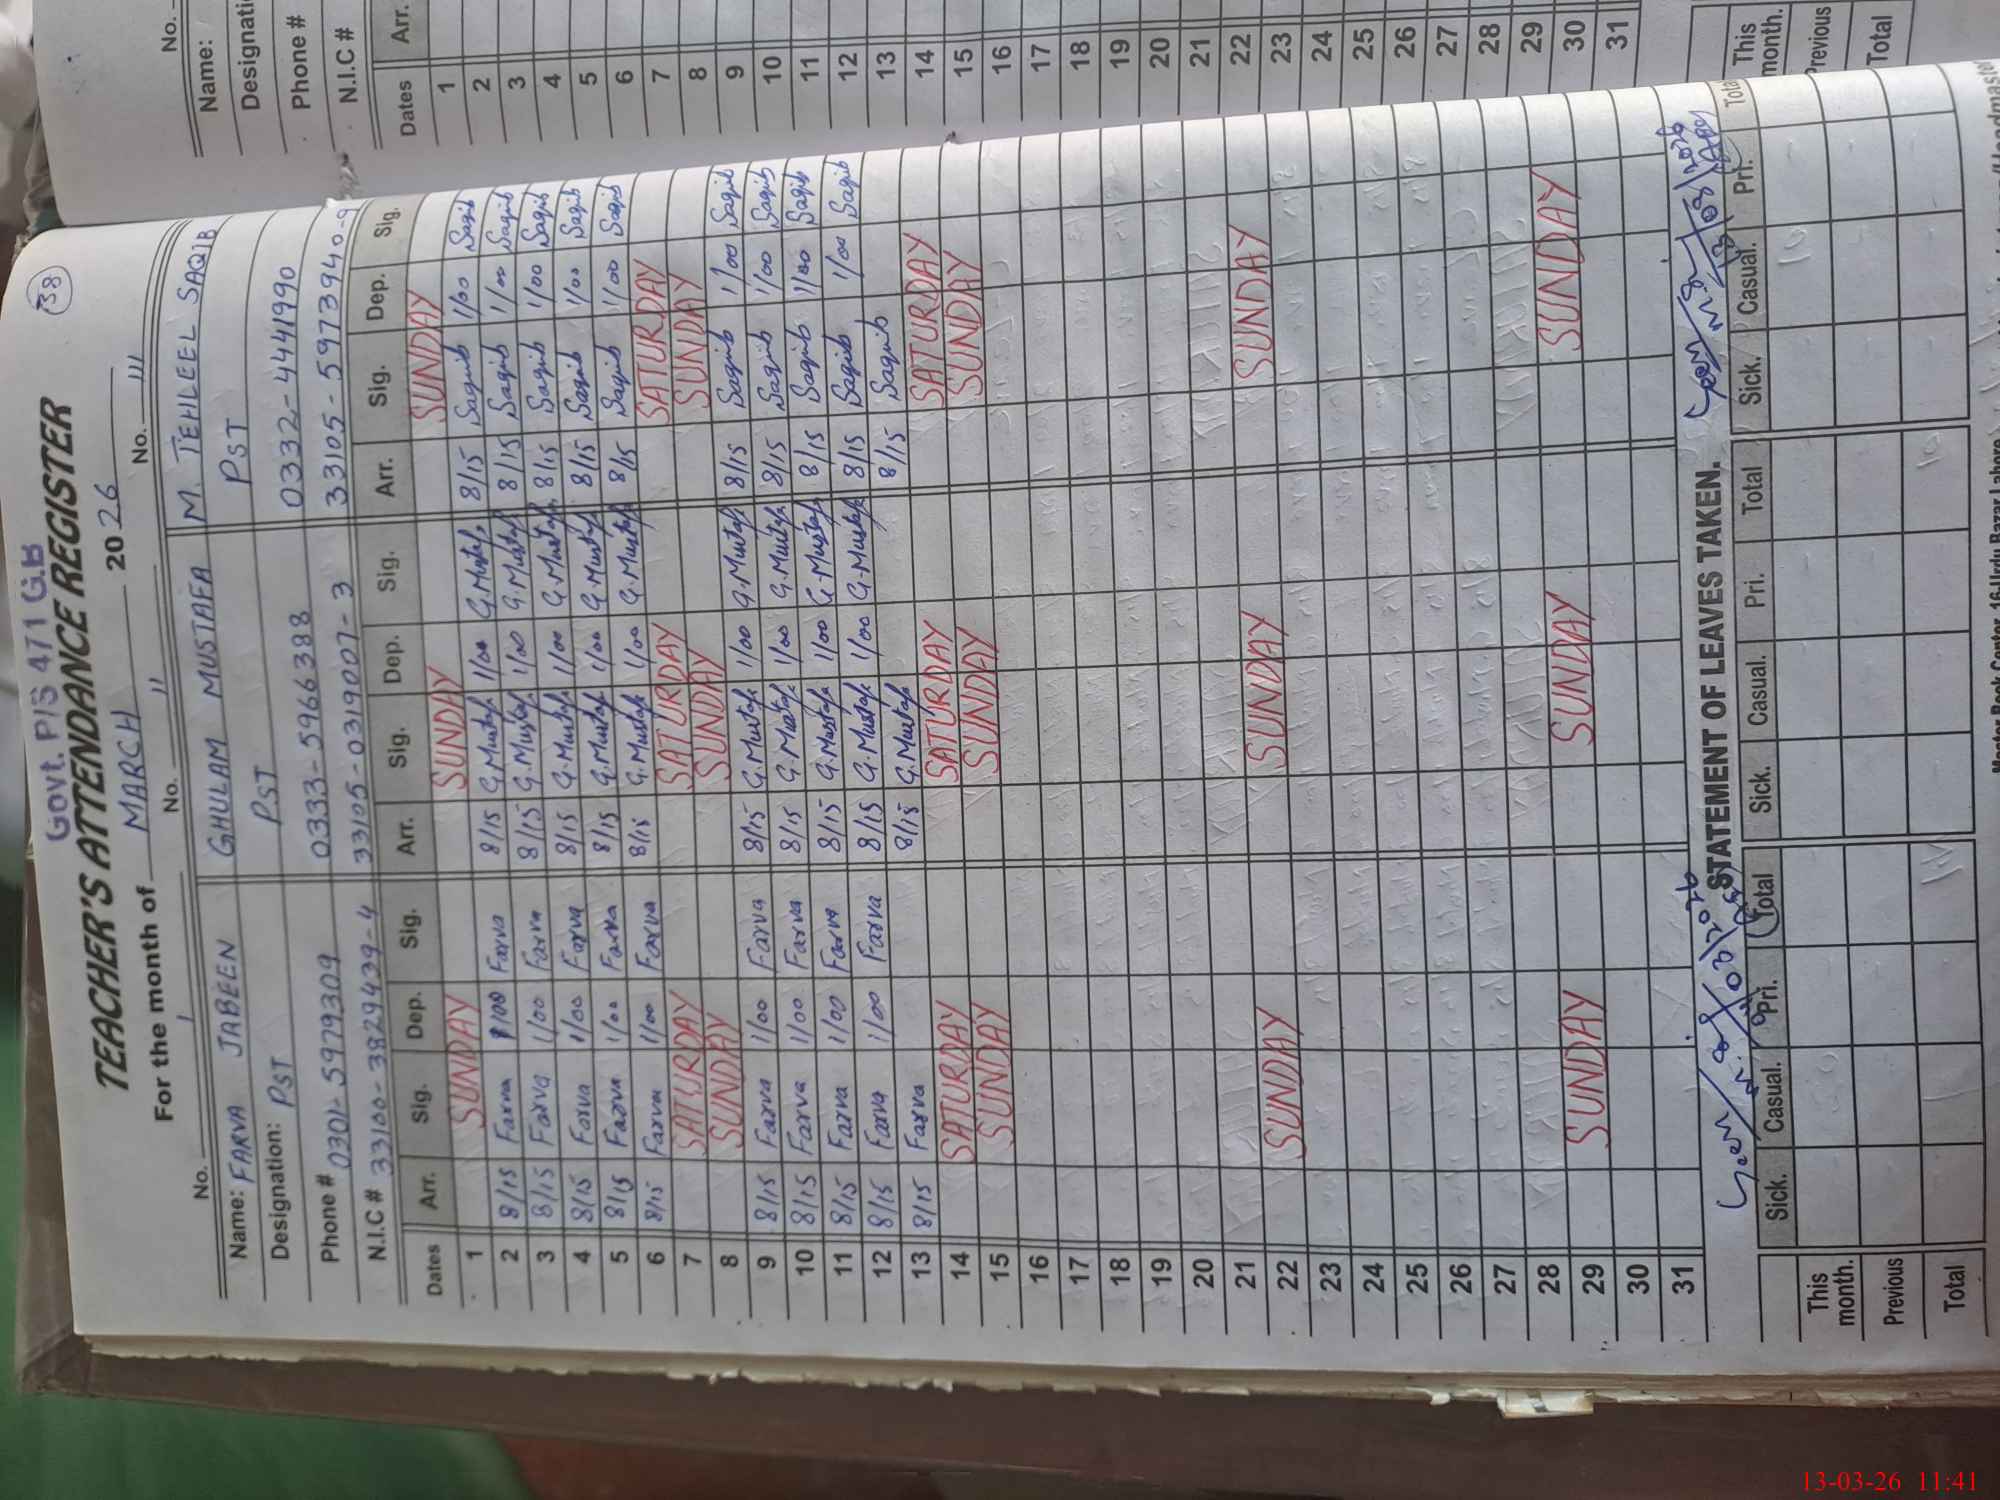 38
Govt. P/S 471 G.B
TEACHER'S ATTENDANCE REGISTER
For the month of MARCH 2026
No. I No. II No. III
Name: FARVA JABEEN GHULAM MUSTAFA M. TEHLEEL SAQIB
Designation: PST PST PST
Phone # 0301-5979309 0333-5966388 0332-4441990
N.I.C # 33100-3829439-4 33105-0319007-3 33105-5973940-9
Dates Arr. Sig. Dep. Sig. Arr. Sig. Dep. Sig. Arr. Sig. Dep. Sig.
1 SUNDAY SUNDAY SUNDAY
2 8/15 Farva 1/00 Farva 8/15 G.Mustafa 1/00 G.Mustafa 8/15 Saqib 1/00 Saqib
3 8/15 Farva 1/00 Farva 8/15 G.Mustafa 1/00 G.Mustafa 8/15 Saqib 1/00 Saqib
4 8/15 Farva 1/00 Farva 8/15 G.Mustafa 1/00 G.Mustafa 8/15 Saqib 1/00 Saqib
5 8/15 Farva 1/00 Farva 8/15 G.Mustafa 1/00 G.Mustafa 8/15 Saqib 1/00 Saqib
6 8/15 Farva 1/00 Farva 8/15 G.Mustafa 1/00 G.Mustafa 8/15 Saqib 1/00 Saqib
7 SATURDAY SATURDAY SATURDAY
8 SUNDAY SUNDAY SUNDAY
9 8/15 Farva 1/00 Farva 8/15 G.Mustafa 1/00 G.Mustafa 8/15 Saqib 1/00 Saqib
10 8/15 Farva 1/00 Farva 8/15 G.Mustafa 1/00 G.Mustafa 8/15 Saqib 1/00 Saqib
11 8/15 Farva 1/00 Farva 8/15 G.Mustafa 1/00 G.Mustafa 8/15 Saqib 1/00 Saqib
12 8/15 Farva 1/00 Farva 8/15 G.Mustafa 1/00 G.Mustafa 8/15 Saqib 1/00 Saqib
13 8/15 Farva 8/15 G.Mustafa 8/15 Saqib
14 SATURDAY SATURDAY SATURDAY
15 SUNDAY SUNDAY SUNDAY
16
17
18
19
20
21
22 SUNDAY SUNDAY SUNDAY
23
24
25
26
27
28
29 SUNDAY SUNDAY SUNDAY
30
31
STATEMENT OF LEAVES TAKEN.
Sick. Casual. Pri. Total Sick. Casual. Pri. Total Sick. Casual. Pri. Total
This month.
Previous
Total
No.
Name:
Designati
Phone #
N.I.C #
Dates Arr.
1
2
3
4
5
6
7
8
9
10
11
12
13
14
15
16
17
18
19
20
21
22
23
24
25
26
27
28
29
30
31
This month.
Previous
Total
13-03-26 11:41